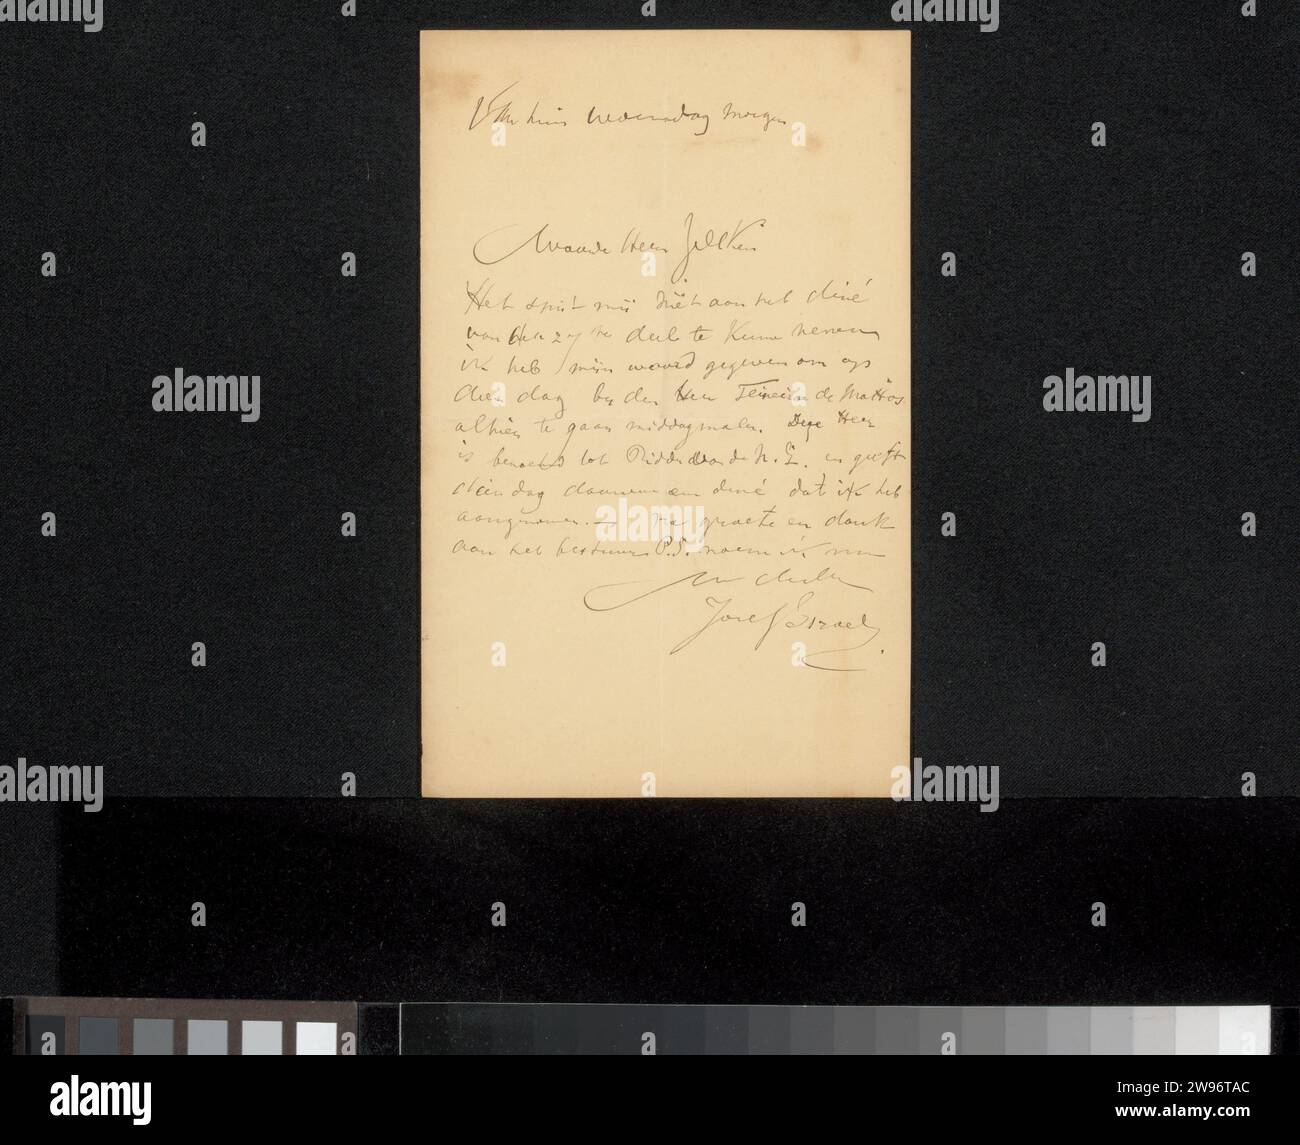 huis woensdag morgen
Waarde Heer Zilcken
Het spijt mij niet aan het diné
van den 27 te deel te kunnen nemen
ik heb mijn woord gegeven om op
dien dag by den Heer Teixeira de Mattos
alhier te gaan middagmalen. Deze Heer
is benoemd tot Ridder v d N. L. en geeft
dien dag daarom een diné dat ik heb
aangenomen. — Na groete en dank
aan het bestuur P.S. noem ik mij
Uw
Jozef Israels
alamy
Image ID: 2W96TAC
www.alamy.com